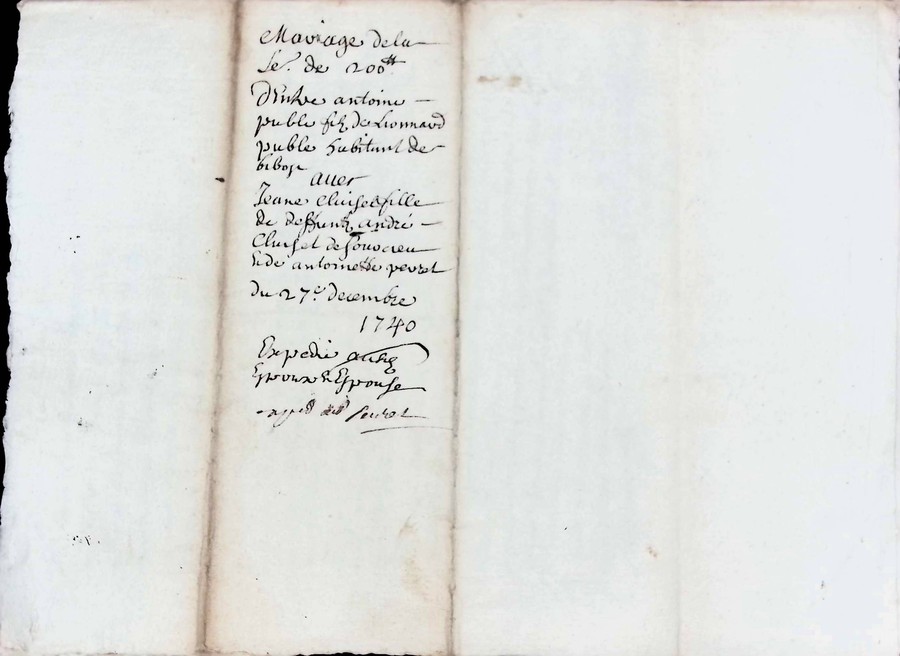 Mariage de la
Se. de 200tt
D'entre antoine
puble filz de Lionnard
puble habitant de
bibost
avec
Jeane Cluiset fille
de deffunt andré
Cluiset de souvcieu
& de antoinette peyret
du 27e. decembre
1740
Expedié ausd
Epoux & Epouse